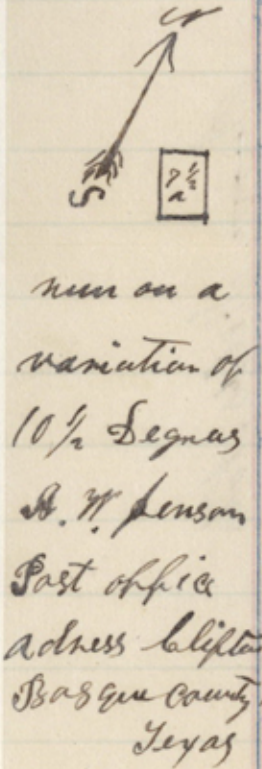 N
S
7 1/2
a
run on a
variation of
10 1/2 Degrees
A. W. Jenson
Post office
adress Clifton
Bosque County
Texas